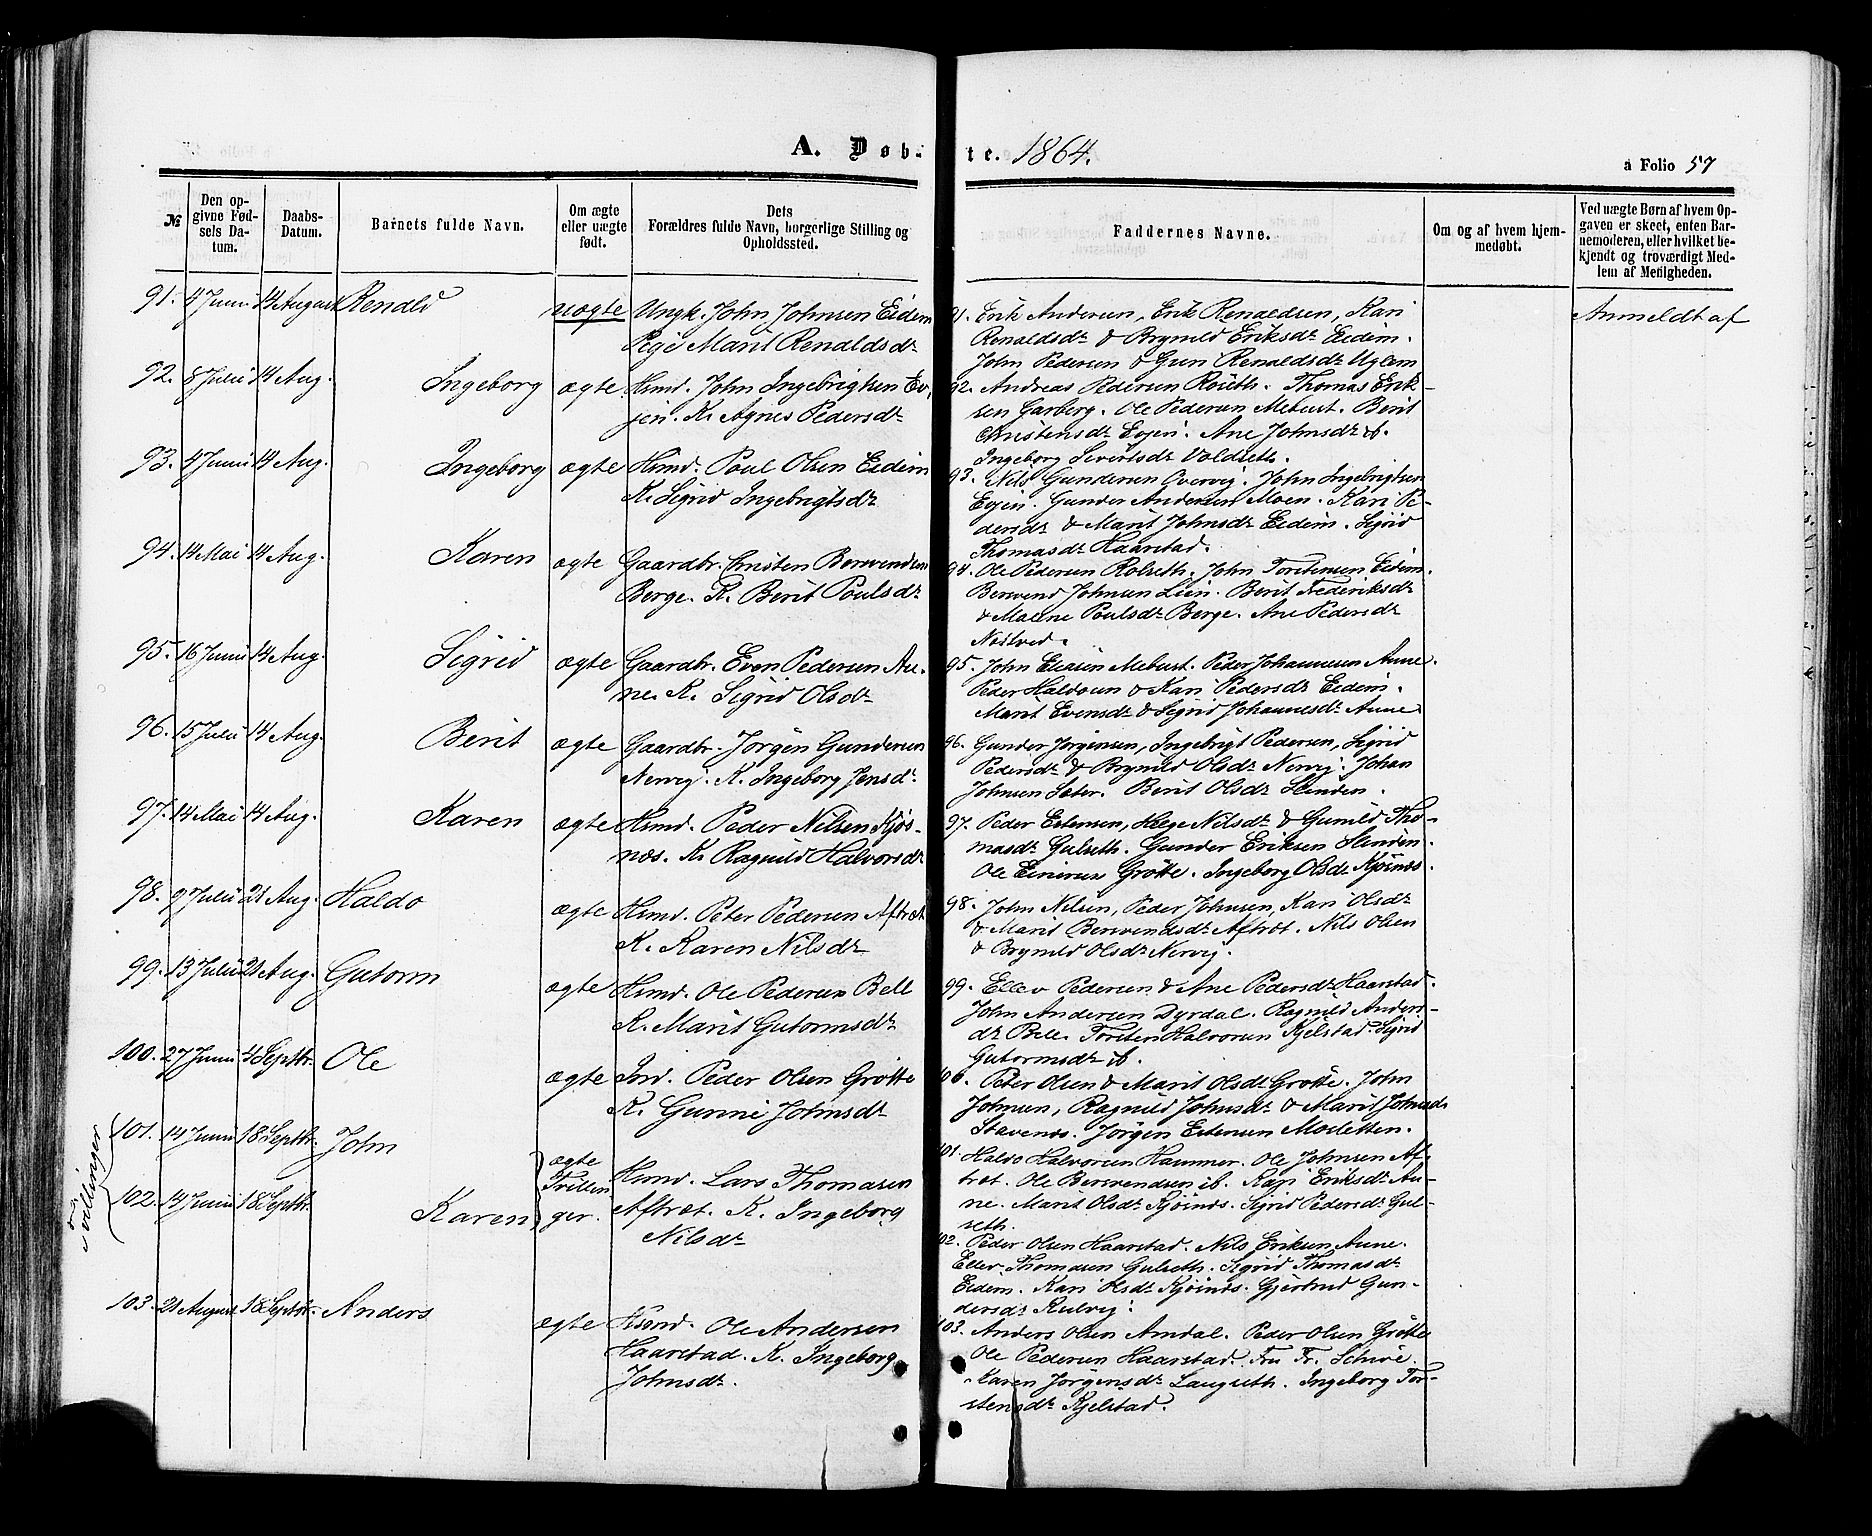 A. Døb- te. 1864.
a Folio 57
№
Den opgivne Fødsels Datum.
Daabs-Datum.
Barnets fulde Navn.
Om ægte eller uægte født.
Dets Forældres fulde Navn, borgerlige Stilling og Opholdssted.
Faddernes Navne.
Om og af hvem hjemmedøbt.
Ved uægte Børn af hvem Opgaven er skeet, enten Barnemoderen, eller hvilket bekjendt og troværdigt Medlem af Menigheden.
91. 4 Juni 14 August Renald uægte Ungk. John Johnsen Eidem
Pige Marit Renaldsdr
91. Erik Andersen, Erik Renaldsen, Kari
Renaldsdr & Brynild Eriksdr Eidem.
John Pedersen & Gun Renaldsdr Uglem
Anmeldt af
92. 8 Juli 14 Aug. Ingeborg ægte Hsmd. John Ingebrigtsen Ev-
jen. K. Agnes Pedersdr
92. Andreas Pedersen Røseth. Thomas Erik-
sen Garberg. Ole Pedersen Mebust. Berit
Christensdr Evjen. Ane Johnsdr ib.
Ingeborg Sivertsdr Voldseth.
93. 4 Juni 14 Aug. Ingeborg ægte Hsmd. Poul Olsen Eidem
K. Sigrid Ingebrigtsdr
93. Nils Gundersen Overvig. John Ingebrigtsen
Evjen. Gunder Andersen Moen. Kari Pe-
dersdr & Marit Johnsdr Eidem. Sigrid
Thomasdr Haarstad.
94. 14 Mai 14 Aug. Karen ægte Gaardbr. Christen Bersvendsen
Berge. K. Berit Poulsdr
94. Ole Pedersen Rolseth. John Torstensen Eidem.
Bersvend Johnsen Lien. Berit Frederiksdr
& Malene Poulsdr Berge. Ane Pedersdr
Nestved.
95. 16 Juni 14 Aug. Sigrid ægte Gaardbr. Even Pedersen Au-
ne. K. Sigrid Olsdr
95. John Eliasen Mebust. Peder Johannesen Aune.
Peder Haldosen & Kari Pedersdr Eidem.
Marit Evensdr & Sigrid Johannesdr Aune
96. 15 Juli 14 Aug. Berit ægte Gaardbr. Jørgen Gundersen
Nervig. K. Ingeborg Jensdr
96. Gunder Jørgensen, Ingebrigt Pedersen, Sigrid
Pedersdr & Brynild Olsdr Nervig. Johan
Johnsen Sæter. Berit Olsdr Slinden.
97. 14 Mai 14 Aug. Karen ægte Hsmd. Peder Nilsen Kjøs-
næs. K. Ragnild Halvorsdr
97. Peder Estensen, Hege Nilsdr & Gunild Tho-
masdr Gulseth. Gunder Eriksen Slinden.
Ole Einersen Grøtte. Ingeborg Olsdr Kjøsnæs.
98. 9 Juli 21 Aug. Haldo ægte Hsmd. Peter Pedersen Aftræt
K. Karen Nilsdr
98. John Nilsen, Peder Johnsen, Kari Olsdr
& Marit Bersvendsdr Aftræt. Nils Olsen
& Brynild Olsdr Nervig.
99. 13 Juli 21 Aug. Gutorm ægte Hsmd. Ole Pedersen Bell
K. Marit Gutormsdr
99. Ellev Pedersen & Ane Pedersdr Haarstad.
John Andersen Dyrdal. Ragnild Anders-
dr Bell. Torsten Halvorsen Kjelstad. Sigrid
Gutormsdr ib.
100. 27 Juni 4 Septbr. Ole ægte Jord. Peder Olsen Grøtte
K. Gurine Johnsdr
100. Peter Olsen & Marit Olsdr Grøtte. John
Johnsen, Ragnild Johnsdr & Marit Johnsdr
Stavenæs. Jørgen Estensen Mosletten.
Tvillinger
101. 14 Juni 18 Septbr. John
102. 14 Juni 18 Septbr. Karen
ægte Trillinger. Hsmd. Lars Thomasen
Aftræt. K. Ingeborg
Nilsdr
101. Haldo Halvorsen Hammer. Ole Johnsen Af-
træt. Ole Bersvendsen ib. Kari Eriksdr Au-
ne. Marit Olsdr Kjøsnæs. Sigrid Pedersdr Gul-
seth.
102. Peder Olsen Haarstad. Nils Eriksen Aune.
Ellev Thomasen Gulseth. Sigrid Thomasdr
Eidem. Kari Olsdr Kjøsnæs. Gjertrud Gun-
dersdr Kulvig.
103. 21 August 18 Septbr. Anders ægte Hsmd. Ole Andersen
Haarstad. K. Ingeborg
Johnsdr.
103. Anders Olsen Amdal. Peder Olsen Grøtte
Ole Pedersen Haarstad. Fru Fr. Schive.
Karen Jørgensdr Langseth. Ingeborg Tor-
stensdr Kjelstad.